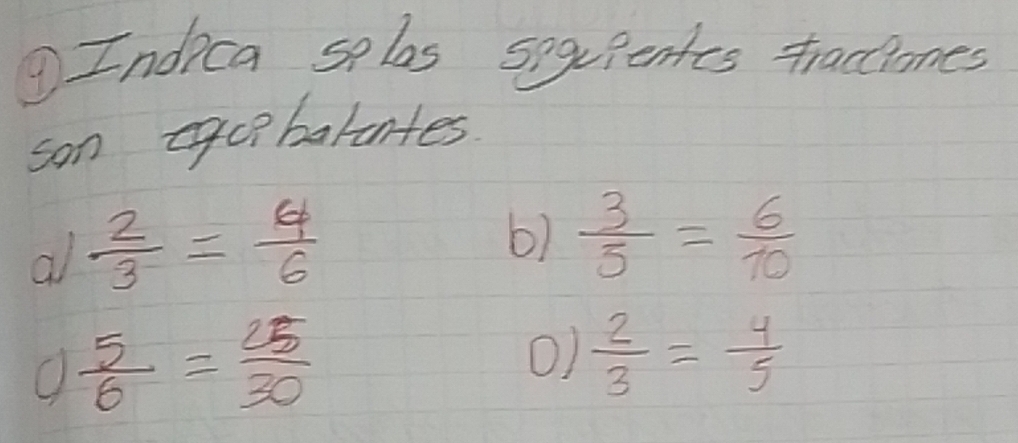 9) Indica si las siguientes fracciones
son equibalentes.
a) 2/3 = 4/6 b) 3/5 = 6/10
c) 5/6 = 25/30 D) 2/3 = 4/5